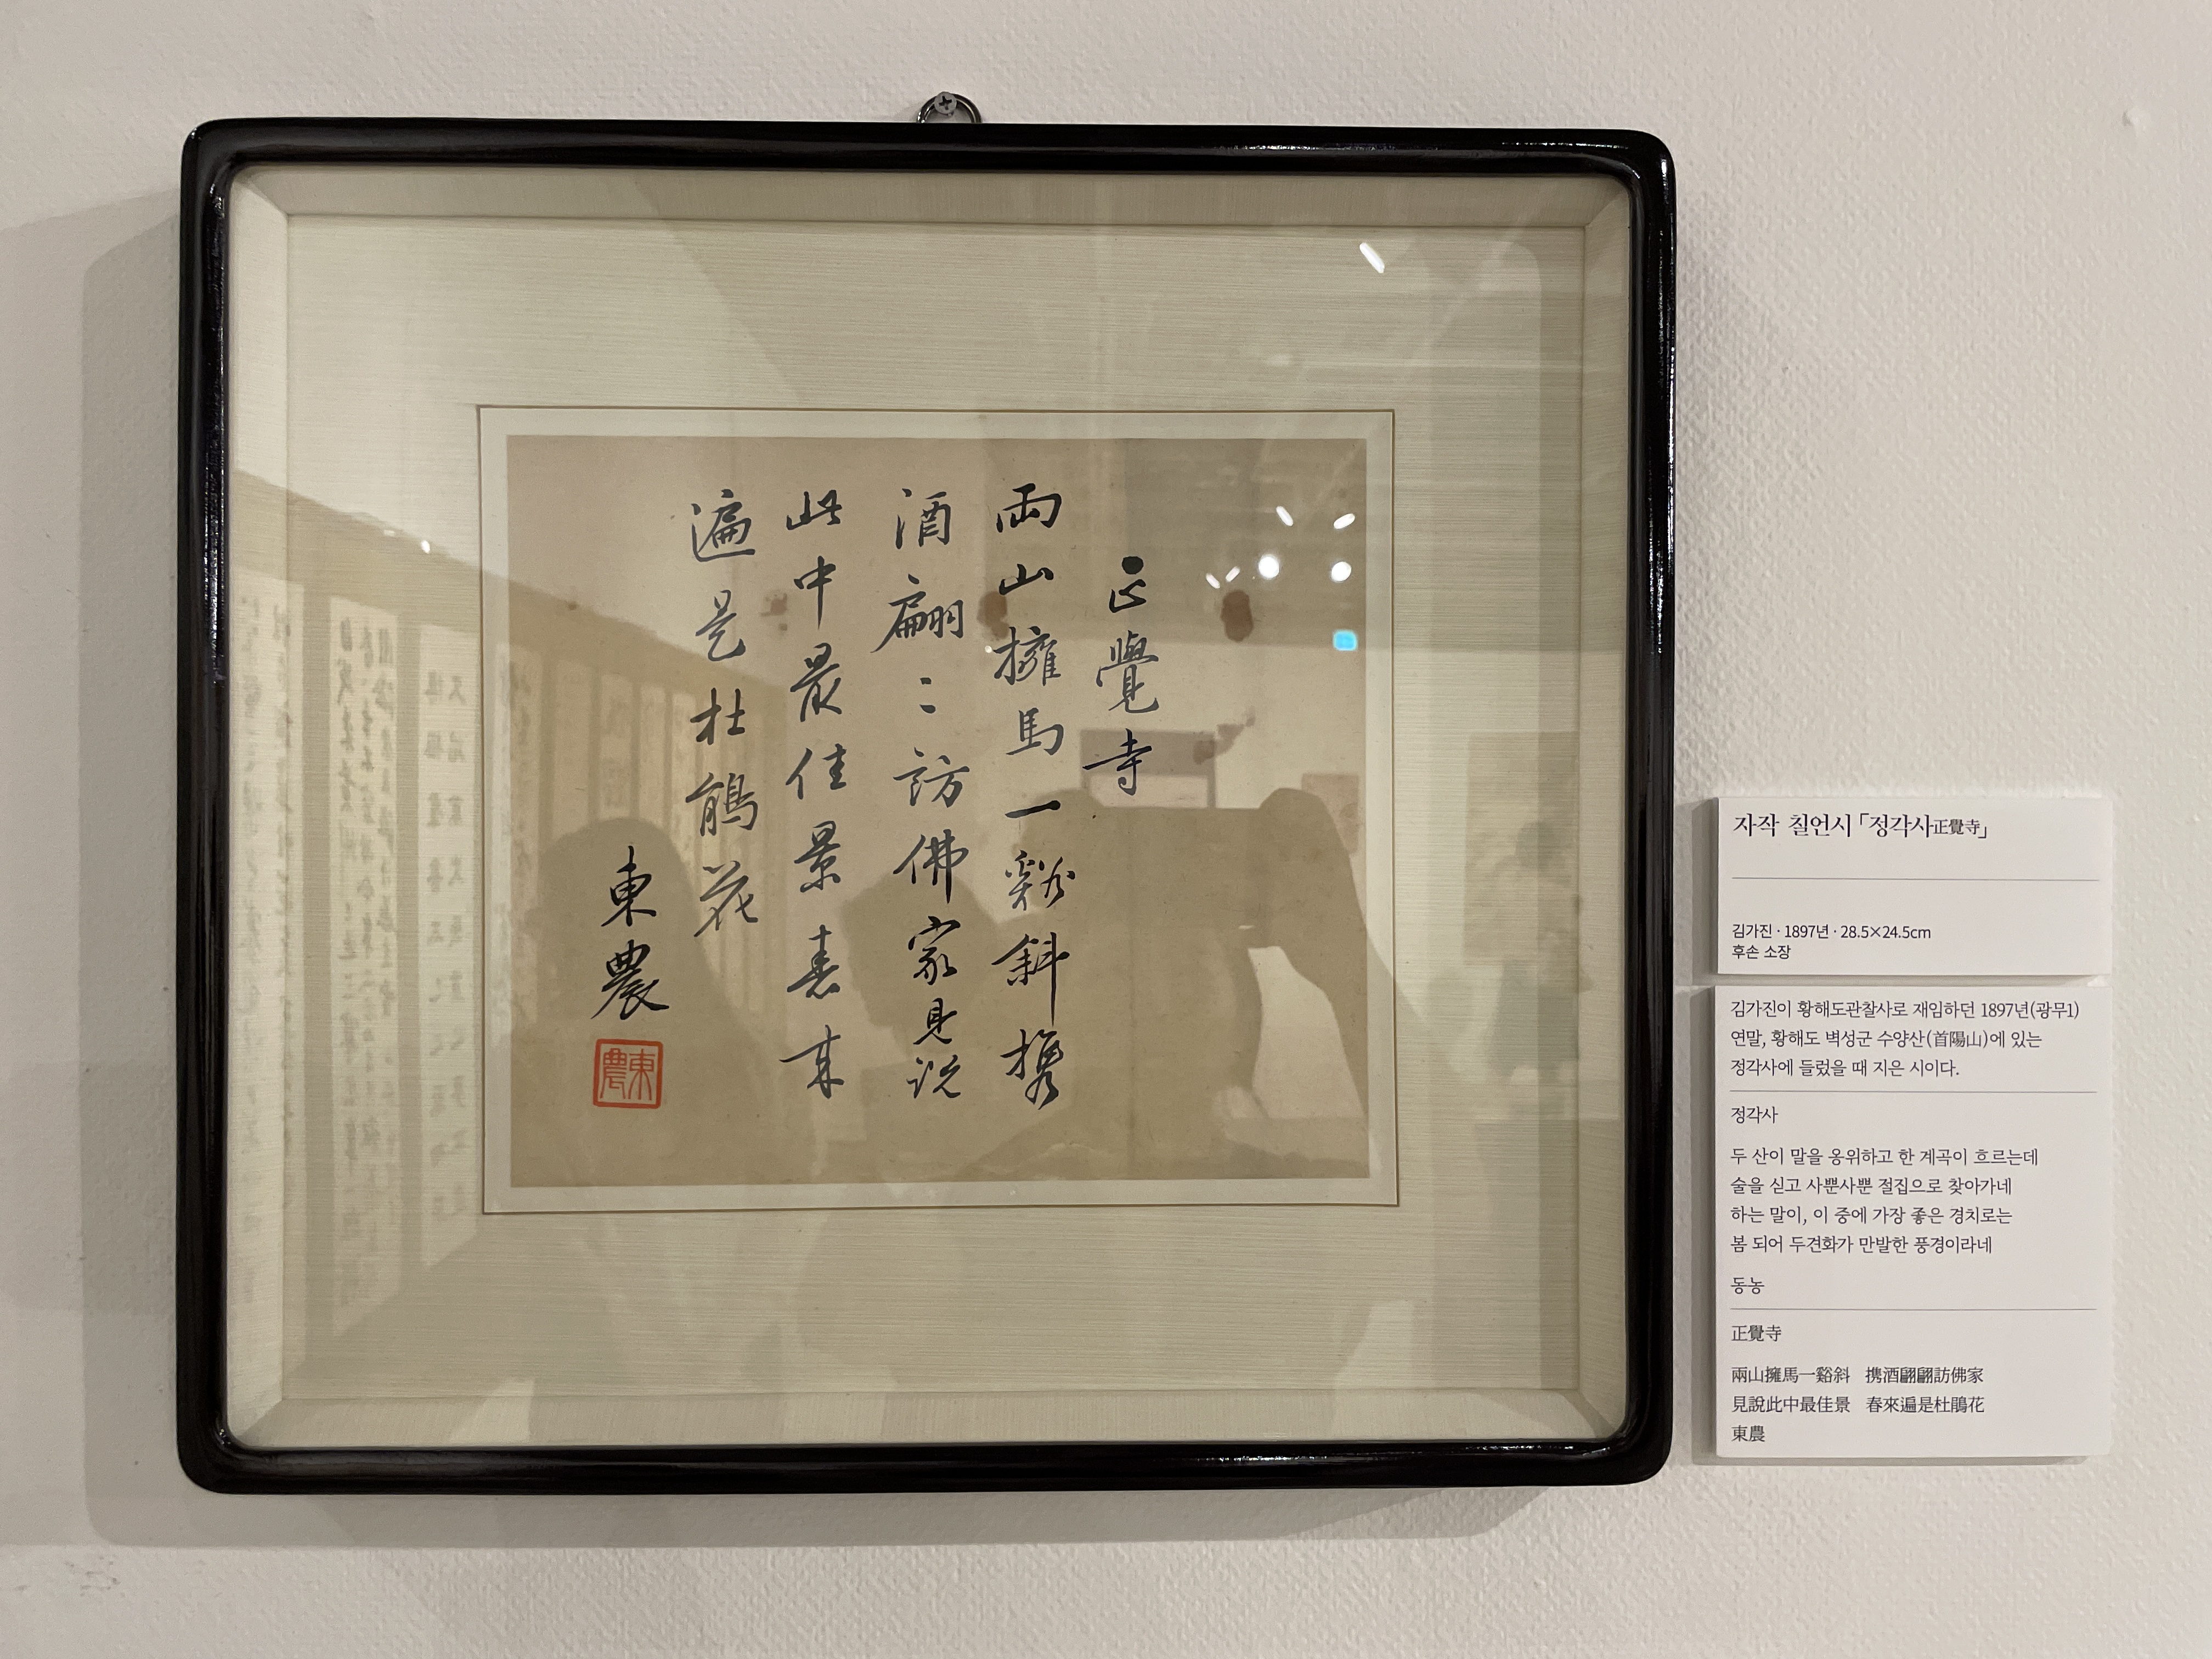 正覺寺
兩山擁馬一谿斜携
酒翩〻訪佛家見説
此中最佳景春来
遍是杜鵑花
東農
東農
자작 칠언시「정각사正覺寺」
김가진 · 1897년 · 28.5×24.5cm
후손 소장
김가진이 황해도관찰사로 재임하던 1897년(광무1)
연말, 황해도 벽성군 수양산(首陽山)에 있는
정각사에 들렀을 때 지은 시이다.
정각사
두 산이 말을 옹위하고 한 계곡이 흐르는데
술을 싣고 사뿐사뿐 절집으로 찾아가네
하는 말이, 이 중에 가장 좋은 경치로는
봄 되어 두견화가 만발한 풍경이라네
동농
正覺寺
兩山擁馬一谿斜 携酒翩翩訪佛家
見說此中最佳景 春來遍是杜鵑花
東農